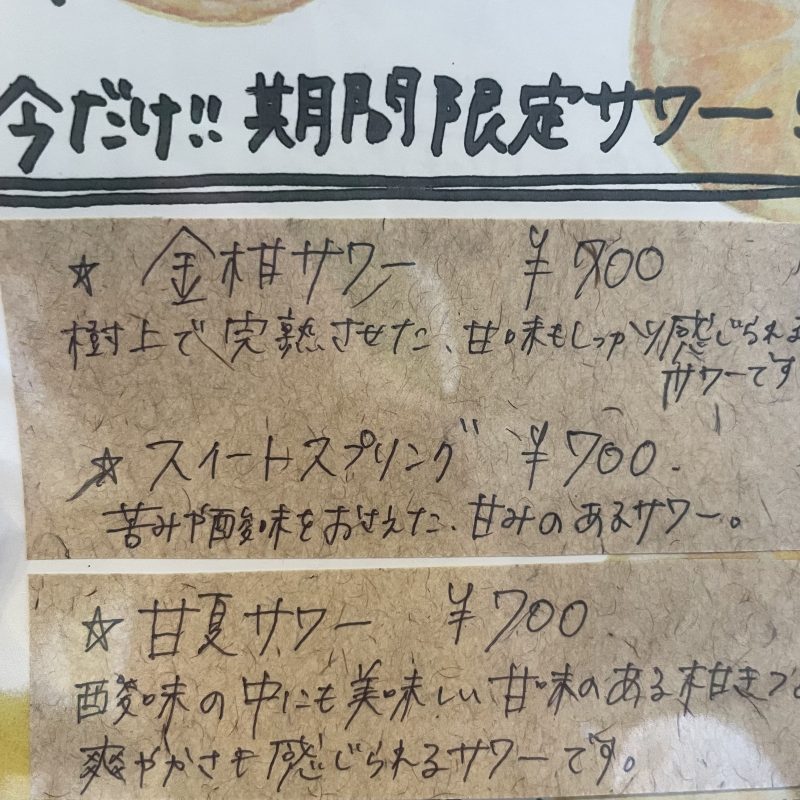 今だけ!! 期間限定サワー
☆ 金柑サワー ¥700
樹上で完熟させた、甘味もしっかり感じられる
サワーです
☆ スイートスプリング ¥700.
苦みや酸味をおさえた、甘みのあるサワー。
☆ 甘夏サワー ¥700
酸味の中にも美味しい甘味のある柑きつ
爽やかさも感じられるサワーです。